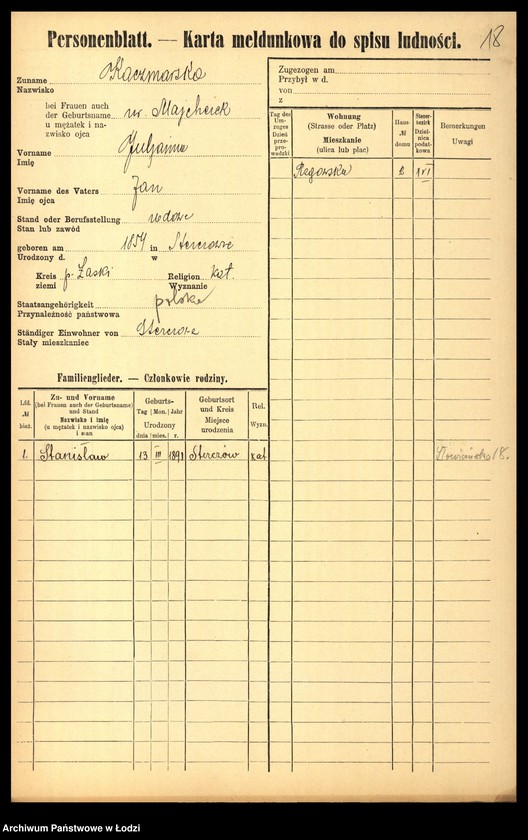 Personenblatt. — Karta meldunkowa do spisu ludności. 18
Zuname Kaczmarska
Nazwisko
bei Frauen auch
der Geburtsname ur. Majchrzek
u mężatek i na-
zwisko ojca
Vorname Juljanna
Imię
Vorname des Vaters Jan
Imię ojca
Stand oder Berufsstellung wdowa
Stan lub zawód
geboren am 1854 in
Urodzony d. w
Kreis p. Łaski Religion kat.
ziemi Wyznanie
Staatsangehörigkeit polska
Przynależność państwowa
Ständiger Einwohner von
Stały mieszkaniec
Zugezogen am
Przybył w d.
von
z
Tag des Um-zuges Dzień prze-prowadzki
Wohnung
(Strasse oder Platz)
Mieszkanie
(ulica lub plac)
Haus- № domu
Steuer-bezirk Dziel-nica podat-kowa
Bemerkungen
Uwagi
Zgierska
Familienglieder. — Członkowie rodziny.
Lfd. № bież.
Zu- und Vorname
(bei Frauen auch der Geburtsname)
und Stand
Nazwisko i imię
(u mężatek i nazwisko ojca)
i stan
Geburts-
Tag | Mon. | Jahr
Urodzony
dnia | mies. | r.
Geburtsort
und Kreis
Miejsce
urodzenia
Rel.
Wyzn.
1. Stanisław 13 III 1891 Sterczów kat 18.
Archiwum Państwowe w Łodzi